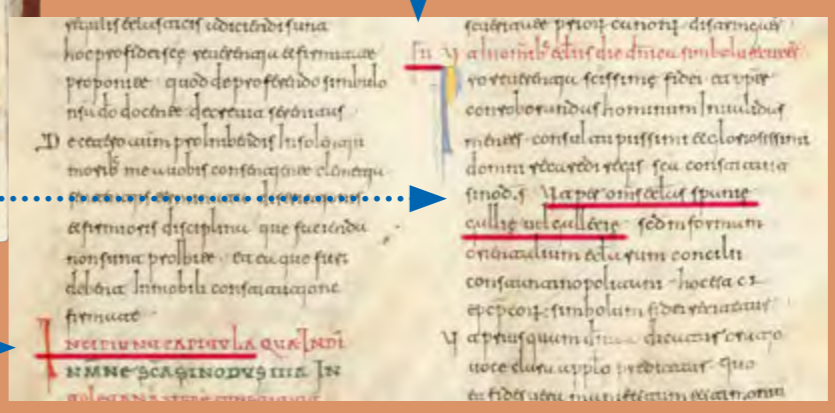 hoc pro fidei sce reuerentia et firmitate
proponite quod de proferendo simbolo
docente decreuit serenitas
De cetero autem prohibendis Insolentium
morib mea uobis consentiente clementia
et firmioris disciplina que facienda
non sunt prohibete ea et que fieri
debent Inmobili constitutione
firmate
INCIPIUNT CAPITULA QUA IN DI
NMNE SCA SINODUS IIIA IN
seueritate prior canonu distringatur
ut in omib eclis die dmca simbolu recitetur
Pro reuerentia scissime fidei et propter
conroborandas hominum Inualidas
mentes consultu piissimi et gloriosissimi
domni reccaredi regis sca constituit
sinod.s Ut per oms eclas spanie
gallie uel gallecie scdm formam
orientalium eclarum concilii
constantinopolitani hoc est cl
epcpcor simbolum fidei recitetur
Ut priusquam dnica dicatur oratio
uoce clara a pplo predicetur quo
et fides uera manifestum testimonium